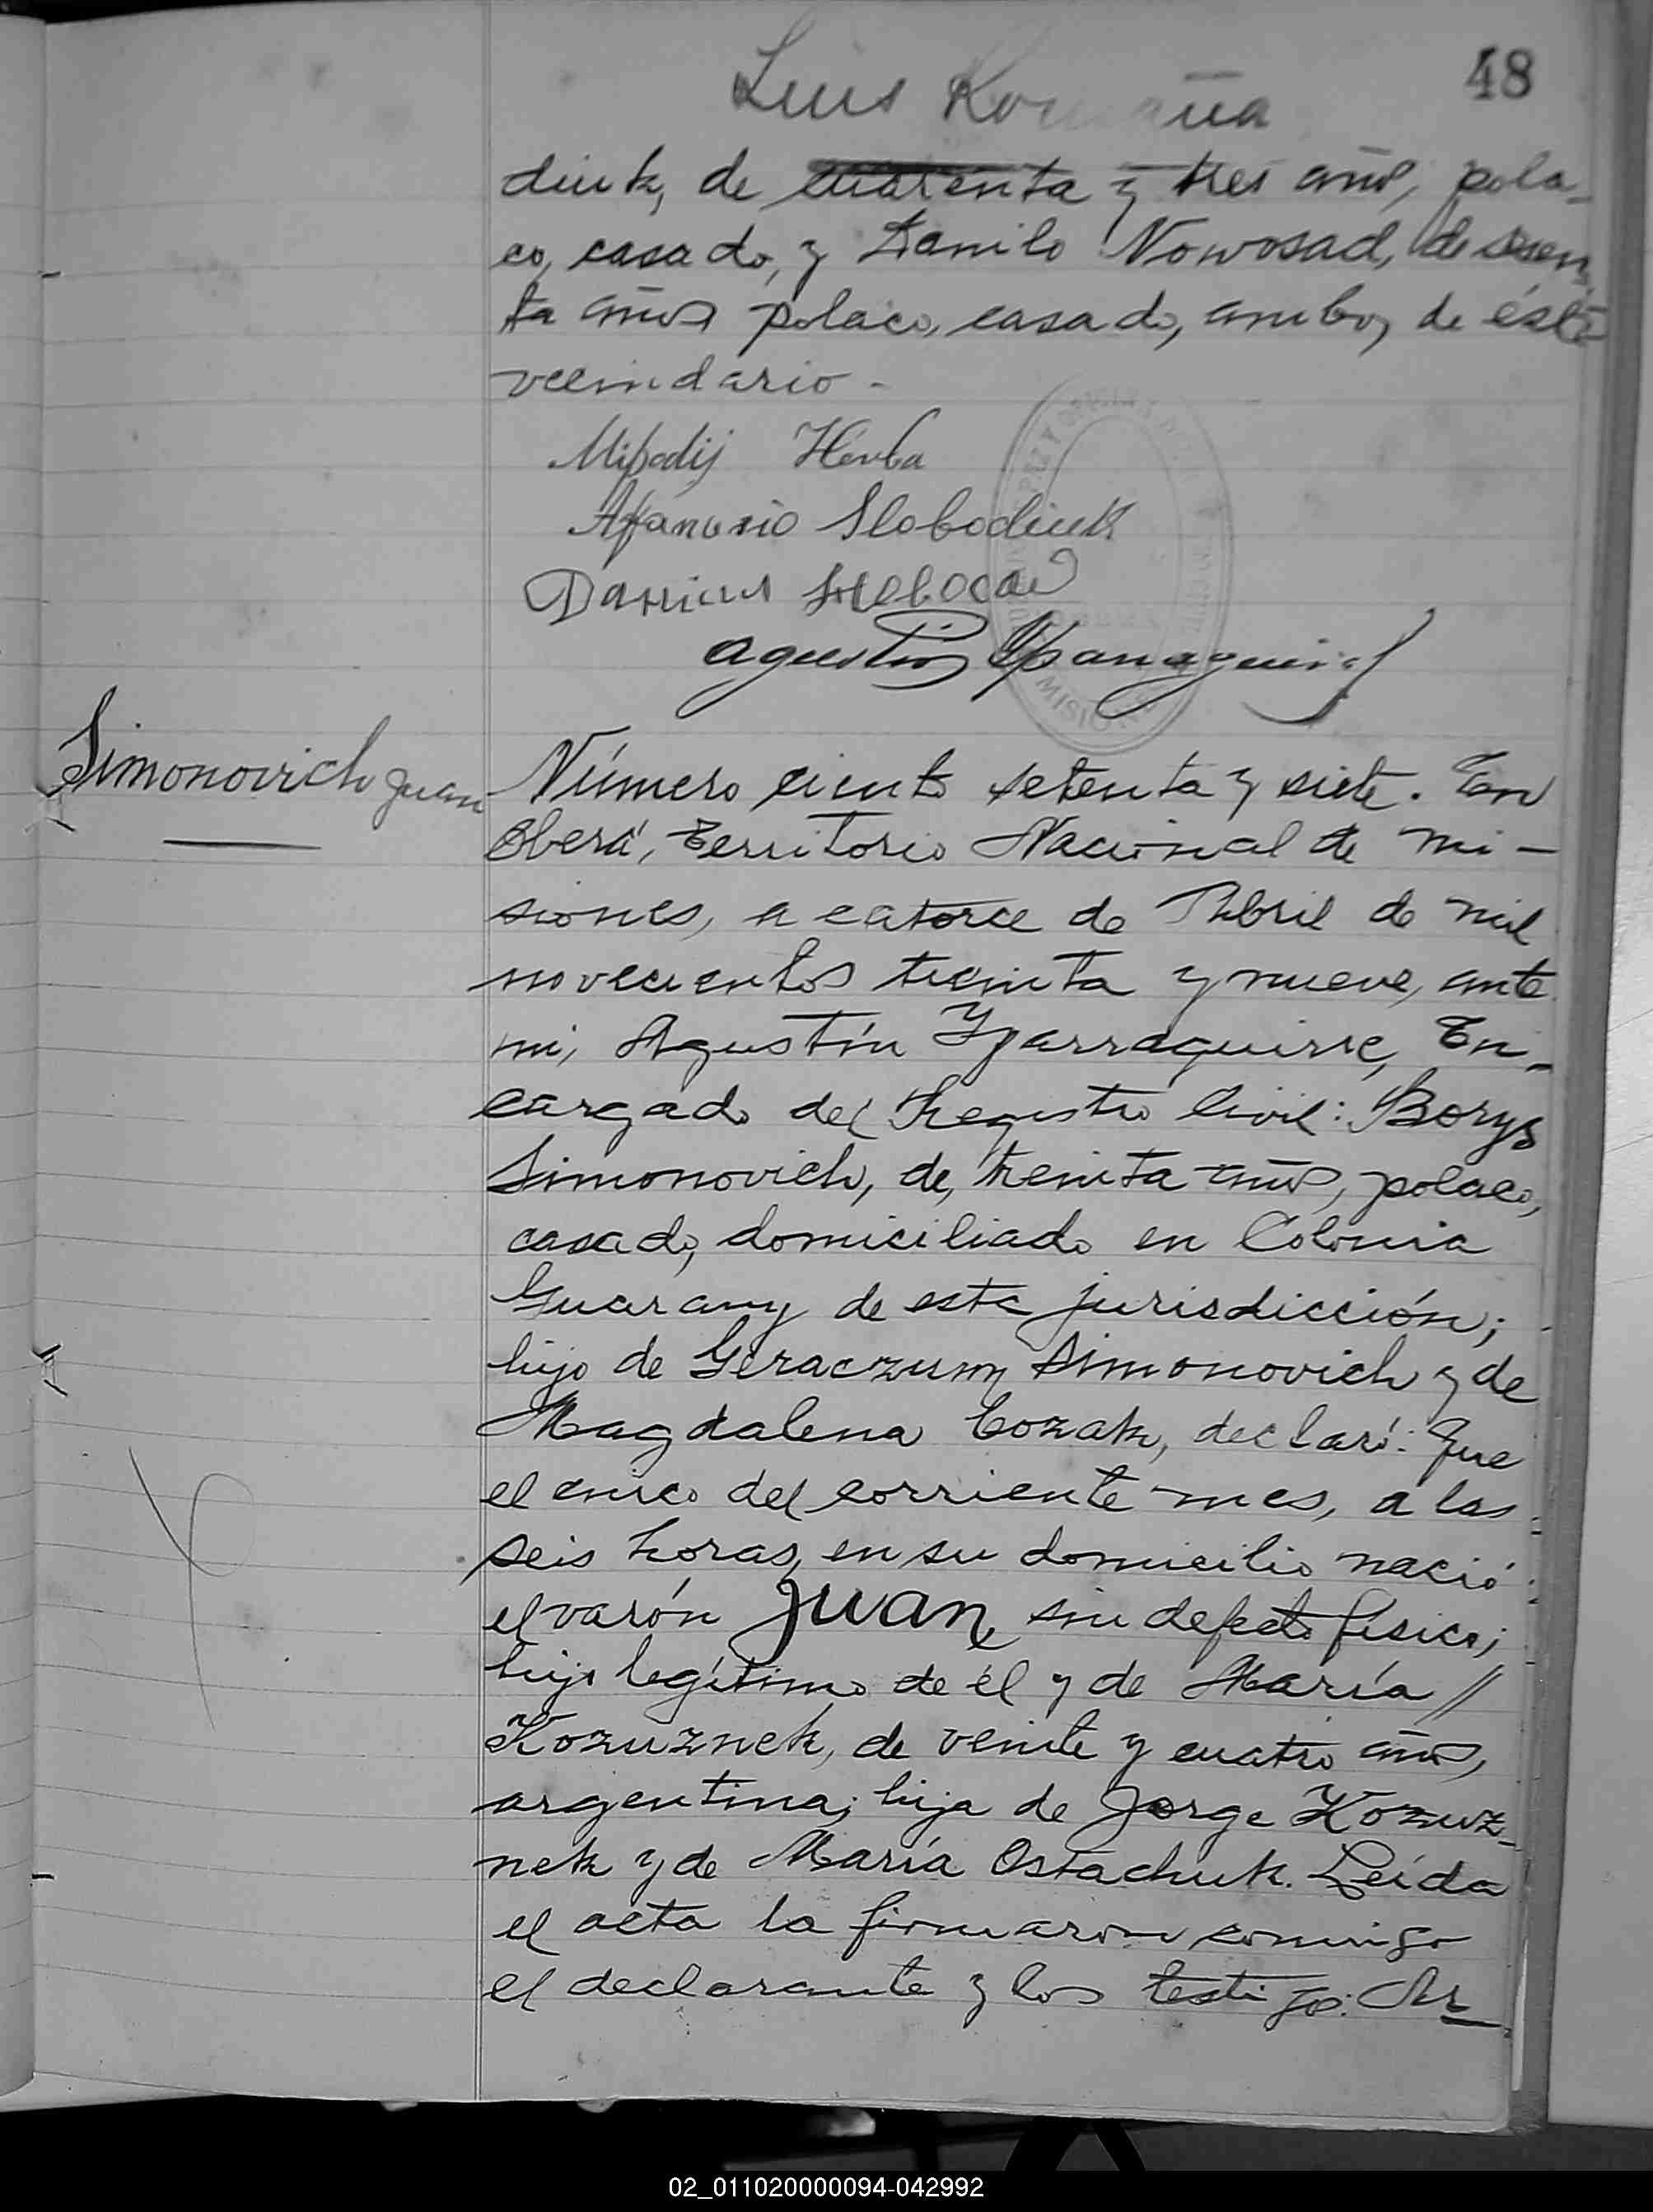 48
Luis
diuk, de cuarenta y tres años, pola-
co, casado, y Danilo Nowosad, de sesen
ta años polaco, casado, ambos de éste
vecindario -
Mifodij Horba
Afanasio Slobodiuk
Simonovich Juan
Número ciento setenta y siete. En
Oberá, Territorio Nacional de Mi-
siones, a catorce de Abril de mil
novecientos treinta y nueve, ante
mi, Agustín Yparraguirre, En-
cargado del Registro Civil: Borys
Simonovich, de, treinta años, polaco,
casado, domiciliado en Colonia
Guarany de esta jurisdicción;
hijo de Geraczum Simonovich y de
Magdalena Cozak, declaró: Que
el cinco del corriente mes, a las
seis horas, en su domicilio nació
el varón Juan, sin defecto físico;
hijo legítimo de él y de María //
Kozuznek, de veinte y cuatro años,
argentina; hija de Jorge Kozuz-
nek y de María Ostachuk. Leída
el acta la firmaron conmigo
el declarante y los testigos: Ar
02_011020000094-042992